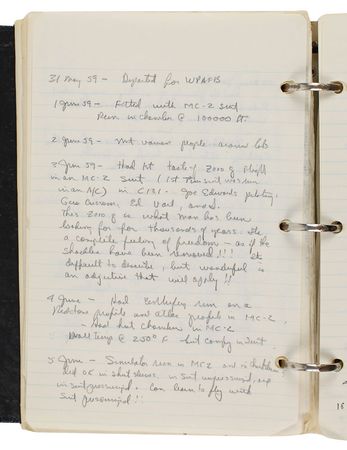 31 May 59 - Departed for WPAFB
1 June 59 - Fitted with MC-2 Suit
Run in chamber @ 100000 ft.
2 June 59 - Met various people around lab
3 June 59 - Had 1st taste of zero g flight
in an MC-2 suit (1st time suit was run
in an A/C) in C131 - Joe Edwards piloting,
Gus Grissom, Ed Vail, and I.
This zero g is what man has been
looking for for thousands of years. It's
a complete feeling of freedom - as if the
shackles have been removed!!! It's
difficult to describe, but wonderful is
an adjective that will apply!!
4 June - Had centrifuge run on a
Redstone profile and atlas profile in MC-2.
- Had hot chamber in MC-2
Wall Temp @ 250° F but comfy in suit.
5 June - Simulator run in MC2 and in
did OK in shirt sleeves, in suit unpressurized, and
in suit pressurized. Can learn to fly with
suit pressurized!!
18